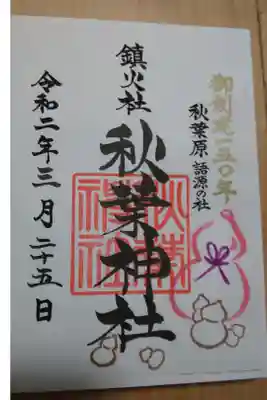 御創建一五〇年
秋葉原 語源の社
鎮火社
秋葉神社
秋葉神社
令和二年三月二十五日